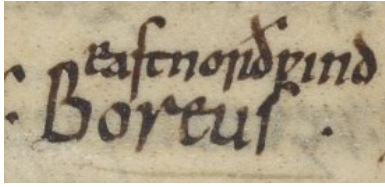 eaſtnorðƿind
· Boreuſ ·